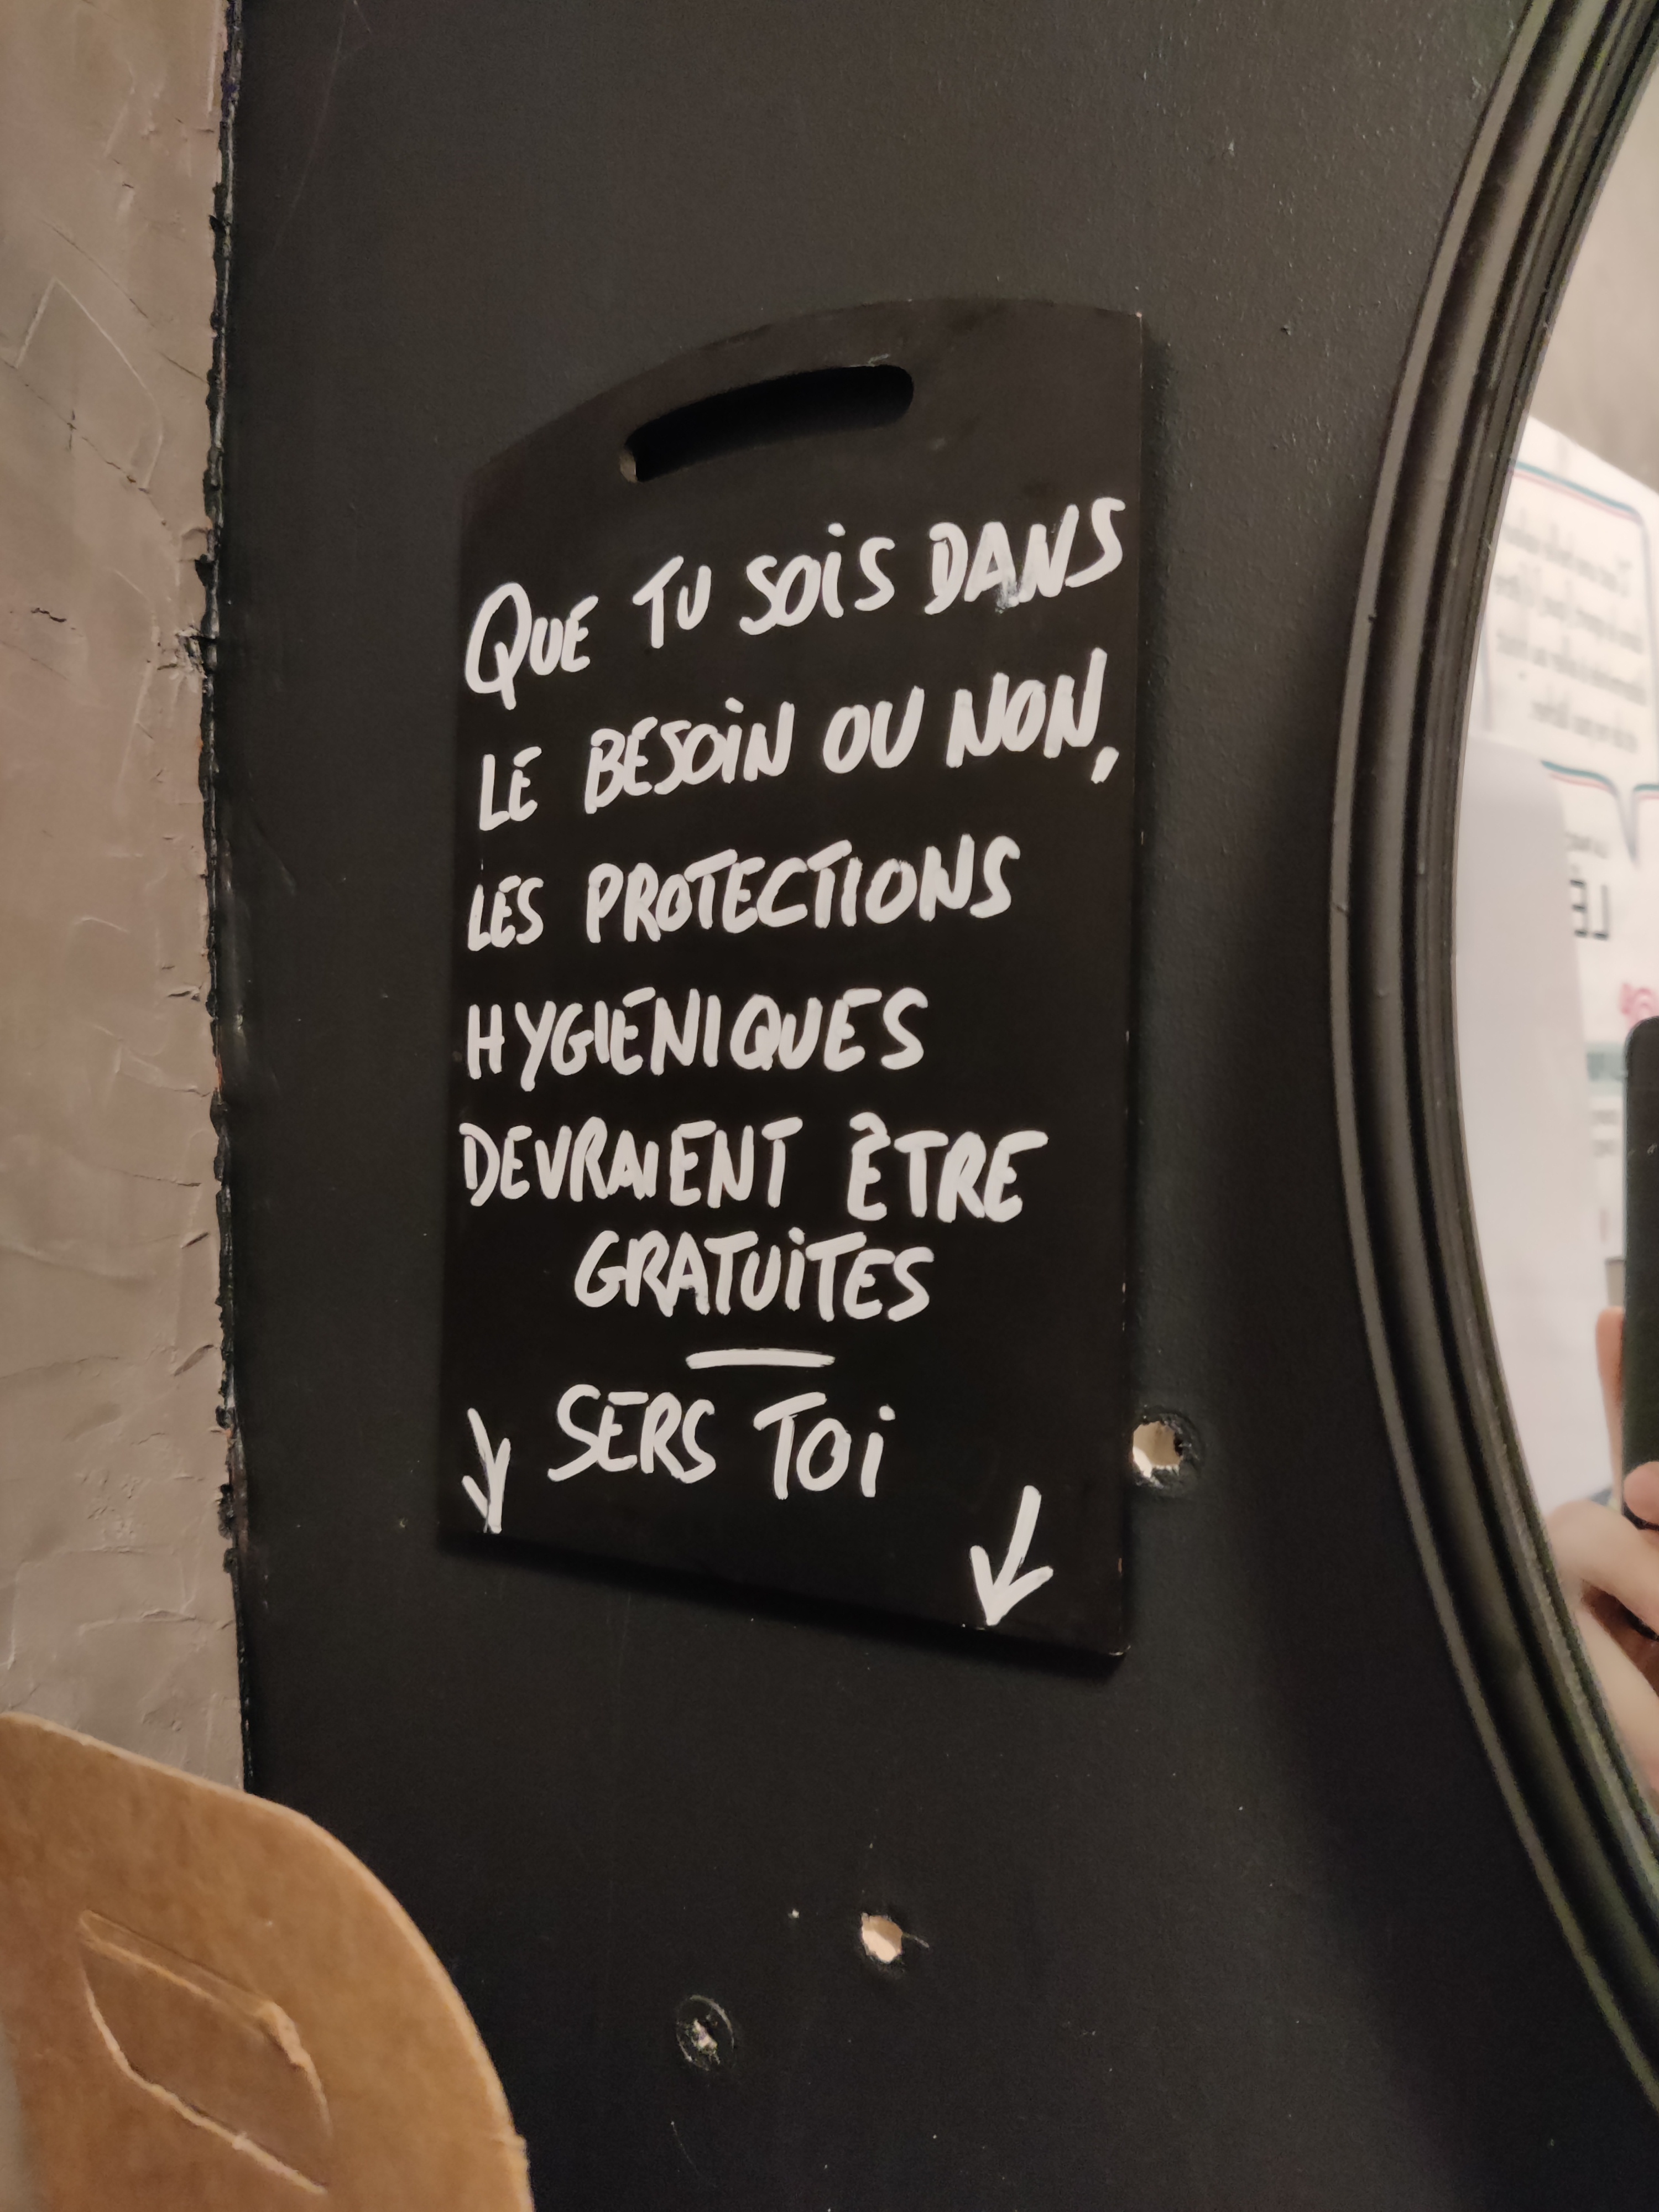 QUE TU SOIS DANS
LE BESOIN OU NON,
LES PROTECTIONS
HYGIÉNIQUES
DEVRAIENT ÊTRE
GRATUITES
SERS TOI